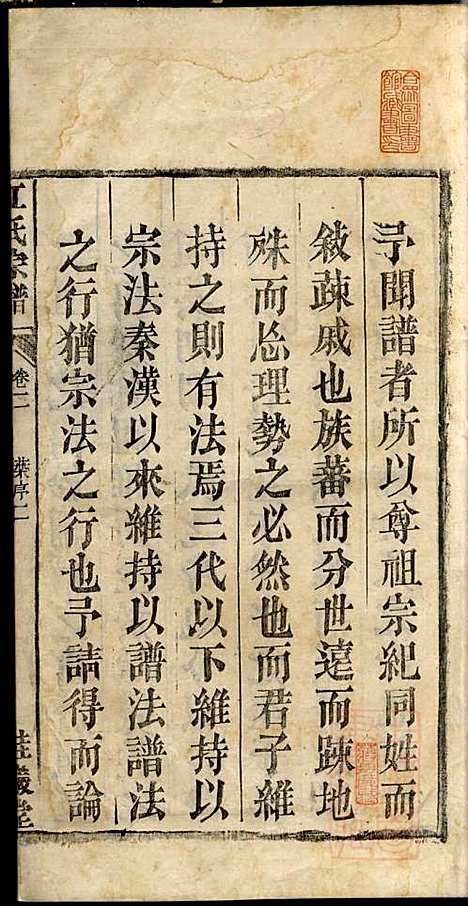 予聞譜者所以尊祖宗紀同姓而
敍疎戚也族蕃而分世遠而踈地
殊而忘理勢之必然也而君子維
持之則有法焉三代以下維持以
宗法秦漢以來維持以譜法譜法
之行猶宗法之行也予請得而論
江氏宗譜 卷二 葉序二